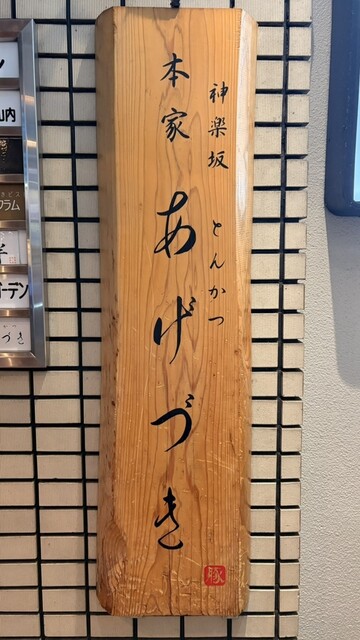 神楽坂 とんかつ
本家 あげづき
豚
山内
ラム
ーデン
づき